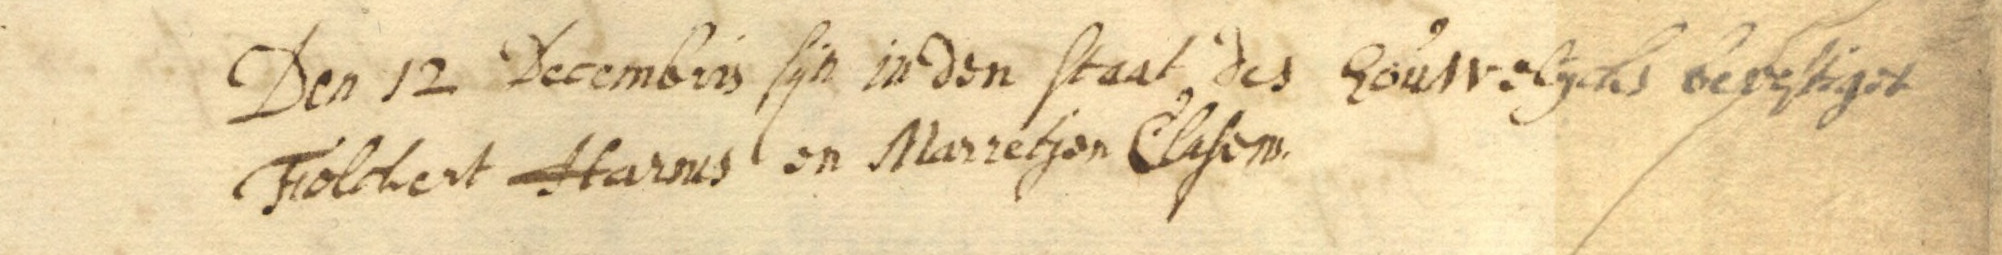 Den 12 Decembris sijn in den staat des houwelijcks bevestiget
Folckert Harms en Marretjen Clasens.